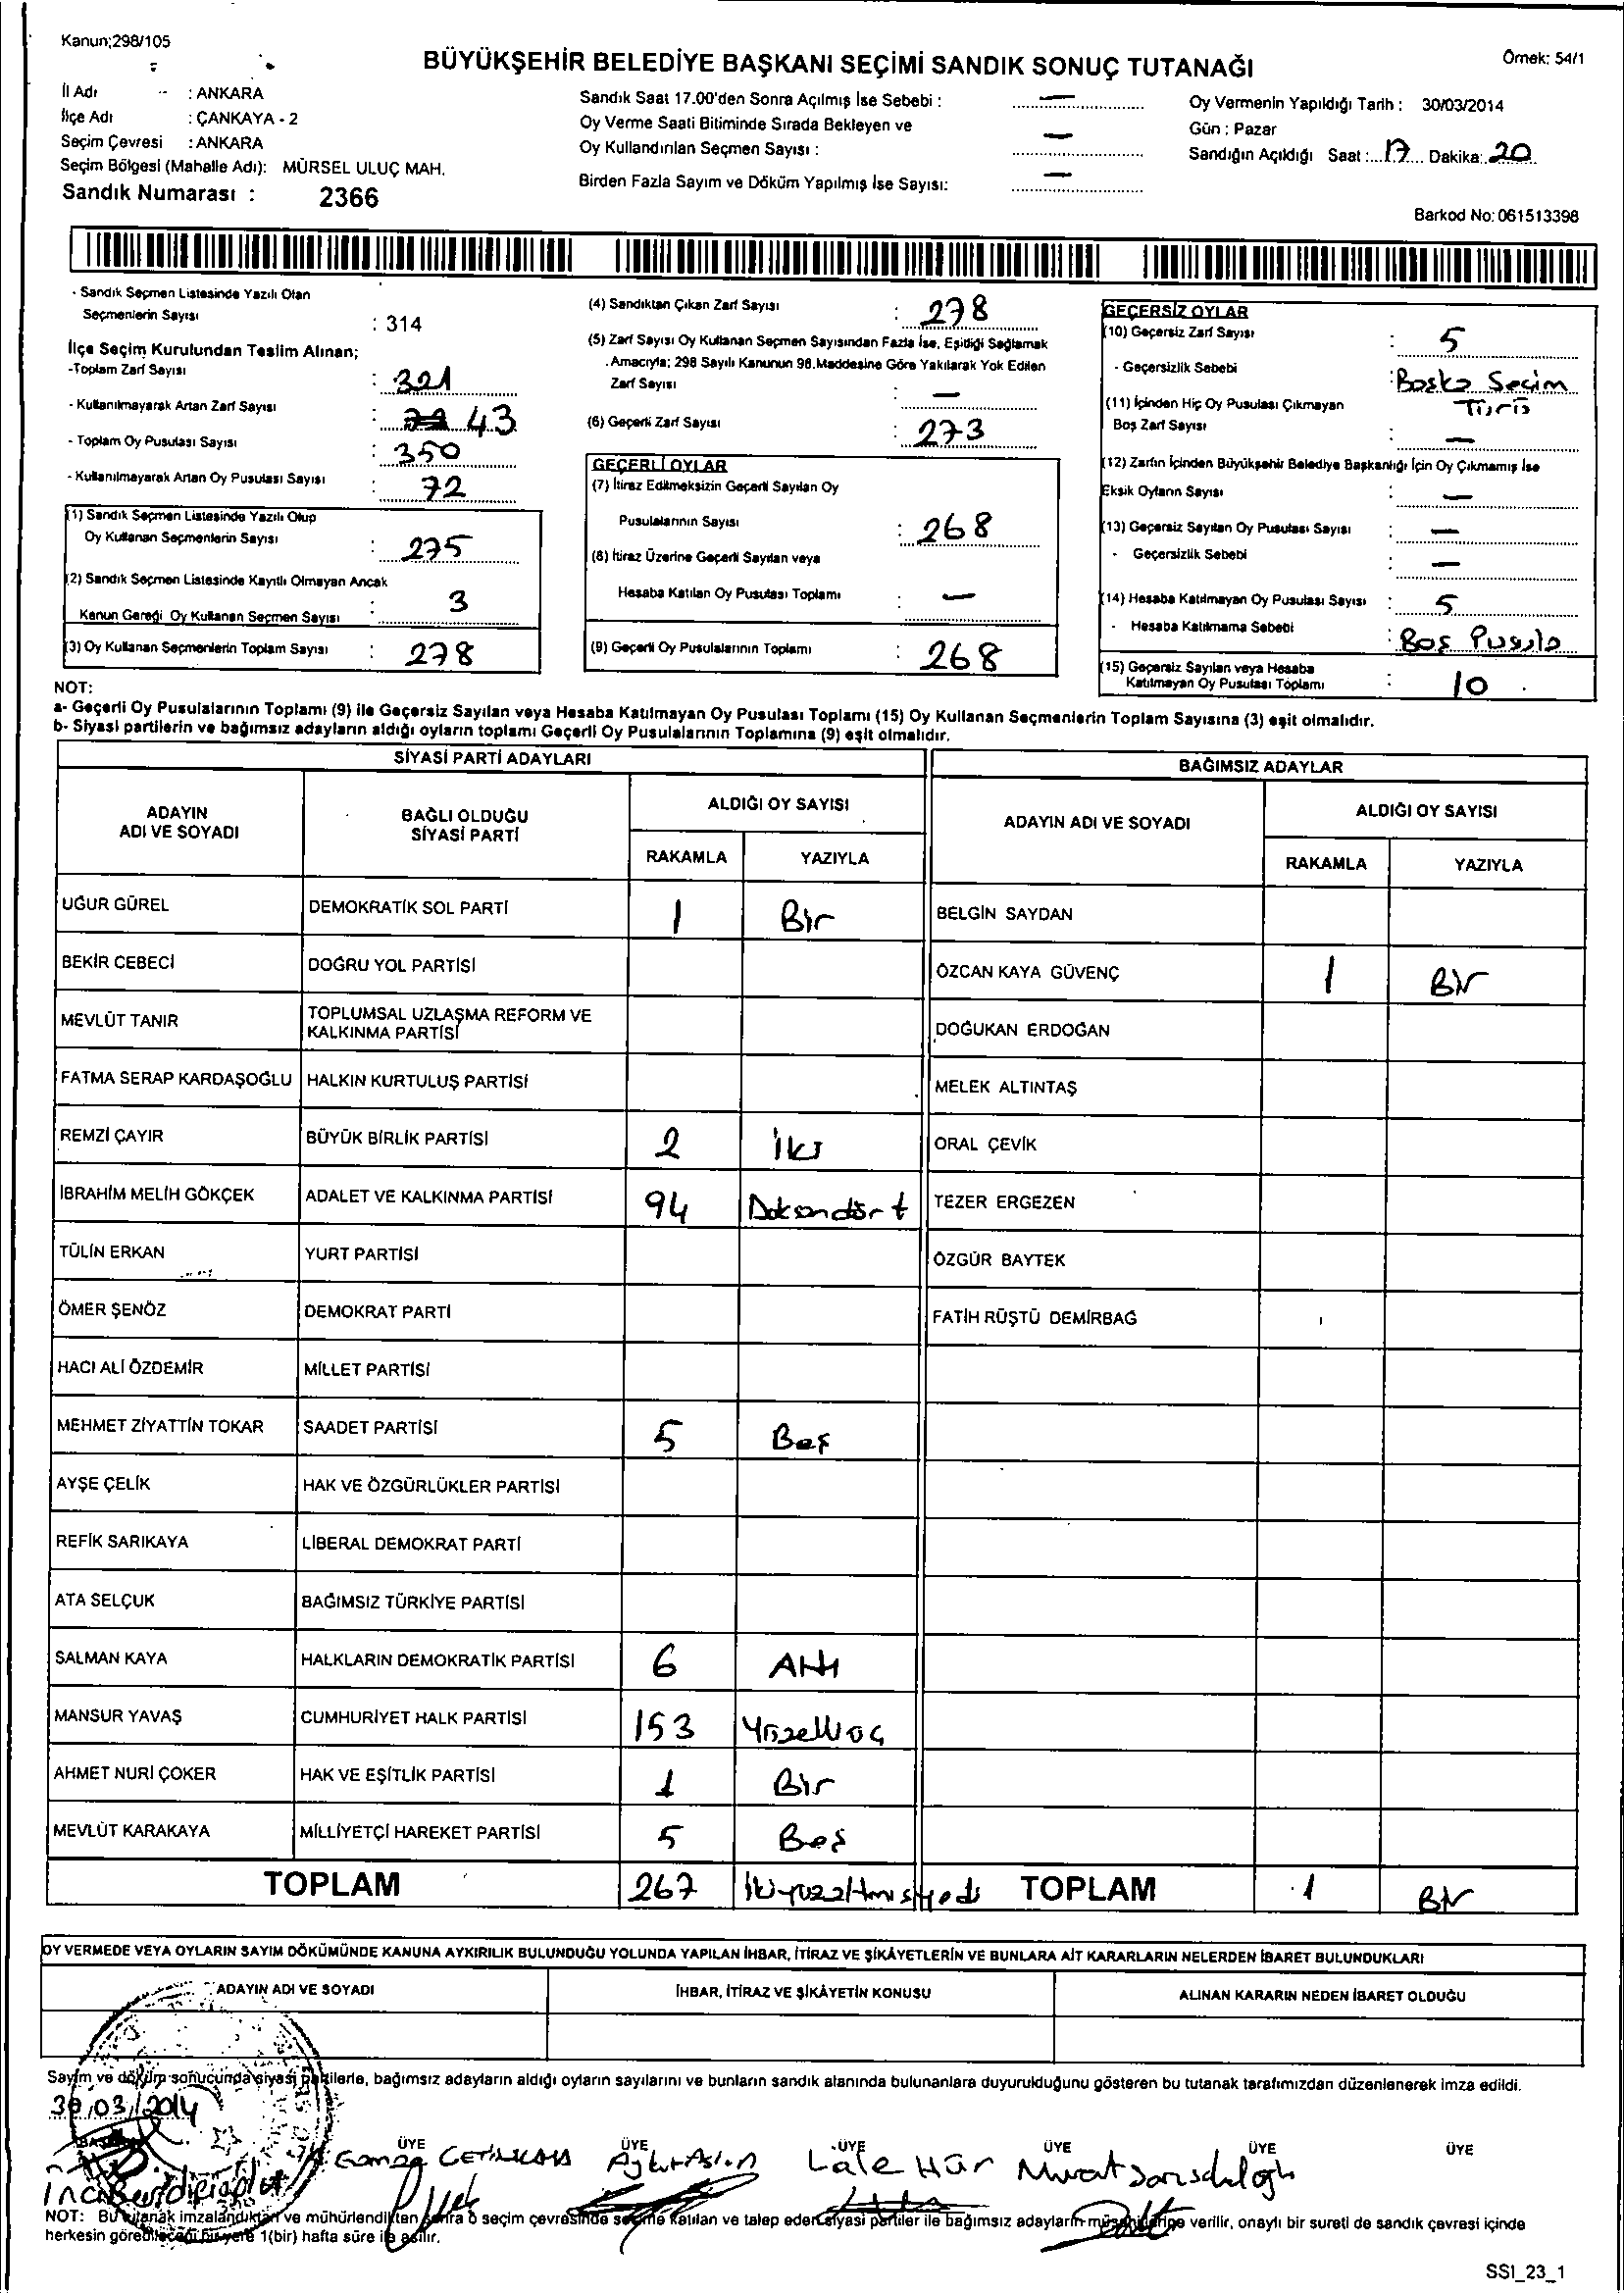 Kanun;298/105
BÜYÜKŞEHİR BELEDİYE BAŞKANI SEÇİMİ SANDIK SONUÇ TUTANAĞI
Örnek: 54/1
İl Adı : ANKARA
İlçe Adı : ÇANKAYA - 2
Seçim Çevresi : ANKARA
Seçim Bölgesi (Mahalle Adı): MÜRSEL ULUÇ MAH.
Sandık Numarası : 2366
Sandık Saat 17.00'den Sonra Açılmış İse Sebebi : —
Oy Verme Saati Bitiminde Sırada Bekleyen ve
Oy Kullandırılan Seçmen Sayısı : —
Birden Fazla Sayım ve Döküm Yapılmış İse Sayısı: —
Oy Vermenin Yapıldığı Tarih : 30/03/2014
Gün : Pazar
Sandığın Açıldığı Saat : 17 Dakika: 20
Barkod No: 061513398
- Sandık Seçmen Listesinde Yazılı Olan
Seçmenlerin Sayısı : 314
İlçe Seçim Kurulundan Teslim Alınan;
-Toplam Zarf Sayısı : 321
- Kullanılmayarak Artan Zarf Sayısı : 43
- Toplam Oy Pusulası Sayısı : 350
- Kullanılmayarak Artan Oy Pusulası Sayısı : 72
(1) Sandık Seçmen Listesinde Yazılı Olup
Oy Kullanan Seçmenlerin Sayısı : 275
(2) Sandık Seçmen Listesinde Kayıtlı Olmayan Ancak
Kanun Gereği Oy Kullanan Seçmen Sayısı : 3
(3) Oy Kullanan Seçmenlerin Toplam Sayısı : 278
(4) Sandıktan Çıkan Zarf Sayısı : 278
(5) Zarf Sayısı Oy Kullanan Seçmen Sayısından Fazla İse, Eşitliği Sağlamak
Amacıyla; 298 Sayılı Kanunun 98.Maddesine Göre Yakılarak Yok Edilen
Zarf Sayısı : —
(6) Geçerli Zarf Sayısı : 273
GEÇERLİ OYLAR
(7) İtiraz Edilmeksizin Geçerli Sayılan Oy
Pusulalarının Sayısı : 268
(8) İtiraz Üzerine Geçerli Sayılan veya
Hesaba Katılan Oy Pusulası Toplamı : —
(9) Geçerli Oy Pusulalarının Toplamı : 268
GEÇERSİZ OYLAR
(10) Geçersiz Zarf Sayısı : 5
- Geçersizlik Sebebi : Başka Seçim
Türü
(11) İçinden Hiç Oy Pusulası Çıkmayan
Boş Zarf Sayısı : —
(12) Zarfın İçinden Büyükşehir Belediye Başkanlığı İçin Oy Çıkmamış İse
Eksik Oyların Sayısı : —
(13) Geçersiz Sayılan Oy Pusulası Sayısı : —
- Geçersizlik Sebebi : —
(14) Hesaba Katılmayan Oy Pusulası Sayısı : 5
- Hesaba Katılmama Sebebi : Boş Pusula
(15) Geçersiz Sayılan veya Hesaba
Katılmayan Oy Pusulası Toplamı : 10
NOT:
a- Geçerli Oy Pusulalarının Toplamı (9) ile Geçersiz Sayılan veya Hesaba Katılmayan Oy Pusulası Toplamı (15) Oy Kullanan Seçmenlerin Toplam Sayısına (3) eşit olmalıdır.
b- Siyasi partilerin ve bağımsız adayların aldığı oyların toplamı Geçerli Oy Pusulalarının Toplamına (9) eşit olmalıdır.
SİYASİ PARTİ ADAYLARI
BAĞIMSIZ ADAYLAR
ADAYIN ADI VE SOYADI
BAĞLI OLDUĞU SİYASİ PARTİ
ALDIĞI OY SAYISI
RAKAMLA YAZIYLA
ADAYIN ADI VE SOYADI
ALDIĞI OY SAYISI
RAKAMLA YAZIYLA
UĞUR GÜREL DEMOKRATİK SOL PARTİ 1 Bir
BELGİN SAYDAN
BEKİR CEBECİ DOĞRU YOL PARTİSİ
ÖZCAN KAYA GÜVENÇ 1 Bir
MEVLÜT TANIR TOPLUMSAL UZLAŞMA REFORM VE
KALKINMA PARTİSİ
DOĞUKAN ERDOĞAN
FATMA SERAP KARDAŞOĞLU HALKIN KURTULUŞ PARTİSİ
MELEK ALTINTAŞ
REMZİ ÇAYIR BÜYÜK BİRLİK PARTİSİ 2 İki
ORAL ÇEVİK
İBRAHİM MELİH GÖKÇEK ADALET VE KALKINMA PARTİSİ 94 Doksandört
TEZER ERGEZEN
TÜLİN ERKAN YURT PARTİSİ
ÖZGÜR BAYTEK
ÖMER ŞENÖZ DEMOKRAT PARTİ
FATİH RÜŞTÜ DEMİRBAĞ
HACI ALİ ÖZDEMİR MİLLET PARTİSİ
MEHMET ZİYATTİN TOKAR SAADET PARTİSİ 5 Beş
AYŞE ÇELİK HAK VE ÖZGÜRLÜKLER PARTİSİ
REFİK SARIKAYA LİBERAL DEMOKRAT PARTİ
ATA SELÇUK BAĞIMSIZ TÜRKİYE PARTİSİ
SALMAN KAYA HALKLARIN DEMOKRATİK PARTİSİ 6 Altı
MANSUR YAVAŞ CUMHURİYET HALK PARTİSİ 153 Yüzelliüç
AHMET NURİ ÇOKER HAK VE EŞİTLİK PARTİSİ 1 Bir
MEVLÜT KARAKAYA MİLLİYETÇİ HAREKET PARTİSİ 5 Beş
TOPLAM 267 ikiyüzaltmışyedi TOPLAM 1 Bir
OY VERMEDE VEYA OYLARIN SAYIM DÖKÜMÜNDE KANUNA AYKIRILIK BULUNDUĞU YOLUNDA YAPILAN İHBAR, İTİRAZ VE ŞİKÂYETLERİN VE BUNLARA AİT KARARLARIN NELERDEN İBARET BULUNDUKLARI
ADAYIN ADI VE SOYADI İHBAR, İTİRAZ VE ŞİKÂYETİN KONUSU ALINAN KARARIN NEDEN İBARET OLDUĞU
Sayım ve döküm sonucunda siyasi partilerle, bağımsız adayların aldığı oyların sayılarını ve bunların sandık alanında bulunanlara duyurulduğunu gösteren bu tutanak tarafımızdan düzenlenerek imza edildi.
30/03/2014
BAŞKAN ÜYE ÜYE ÜYE ÜYE ÜYE ÜYE
Gamze ÇETİNKAYA Aykut Aslan Lale Hür Murat
NOT: Bu tutanak imzalandıktan ve mühürlendikten sonra o seçim çevresinde seçime katılan ve talep eden siyasi partiler ile bağımsız adayların müşahitlerine verilir, onaylı bir sureti de sandık çevresi içinde
herkesin görebileceği bir yere 1(bir) hafta süre ile asılır.
SSI_23_1